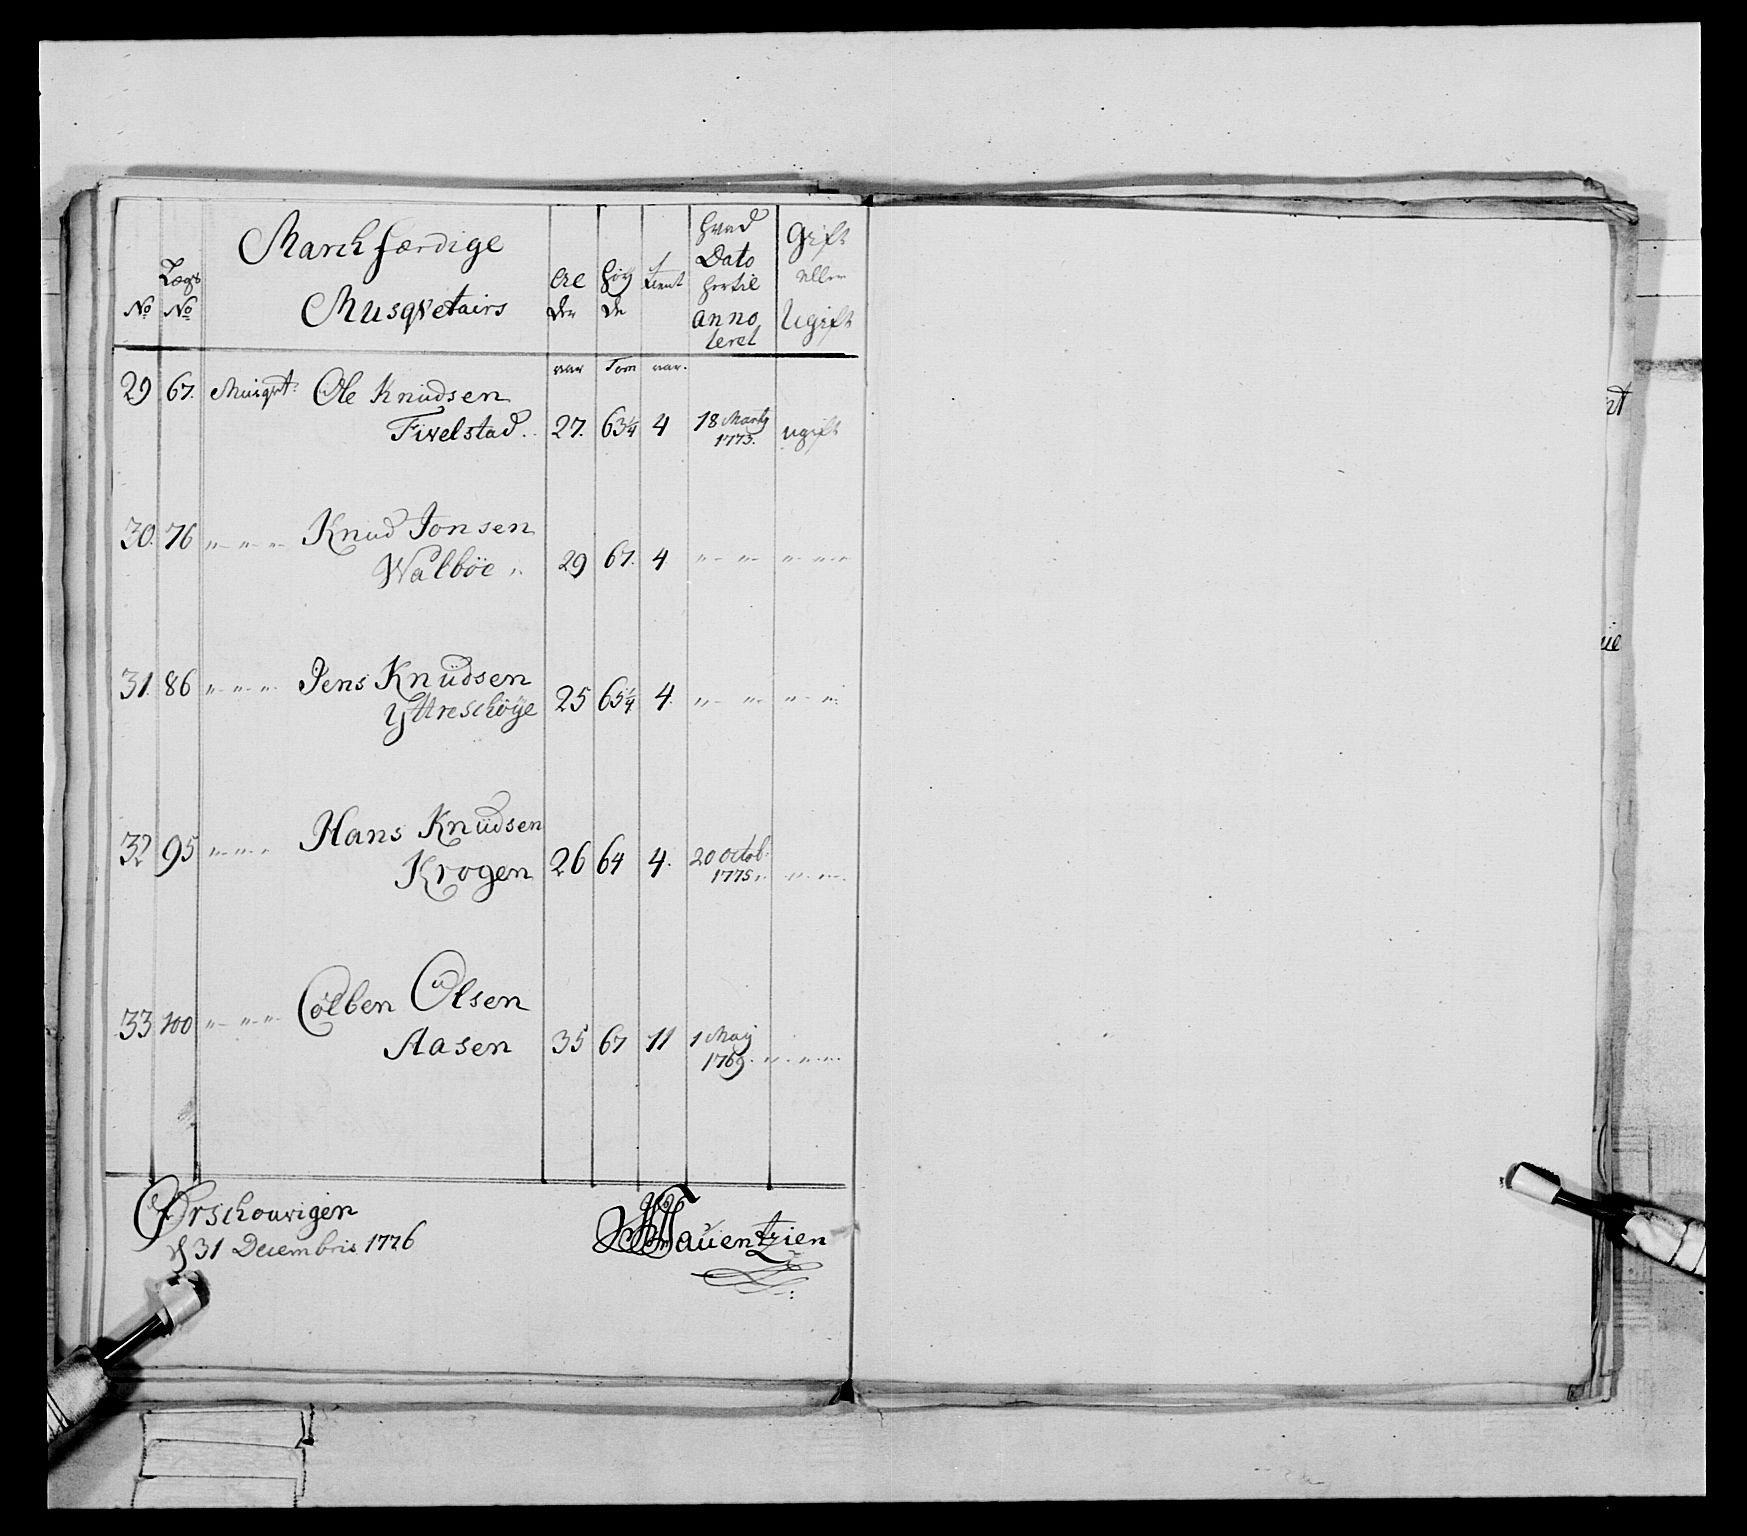 March færdige
Musqvetairs
No
Lægs No
Al der
Höÿ de
Tient
hvad Dato hertil anno teret
Gift eller Ugift
aar Tom aar.
29 67. Musqvt: Ole Knudsen
Fivelstad.. 27. 63¼ 4 18 Martÿ 1773. ugift
30. 76 " " " Knud Jonsen
Walböe " 29 67. 4 " " " " "
31. 86 " " " Jens Knüdsen
Yttreschöÿe 25 65¼ 4. " " " "
32 95 " " " Hans Knüdsen
Krogen 26 64 4. 20 Octob: 1775. " " "
33 100 " " " Colben Olsen
Aasen 35 67 11 1 Maÿ 1769. " " "
Ørschouvigen
d 31 Decembris 1776
Tauentzien